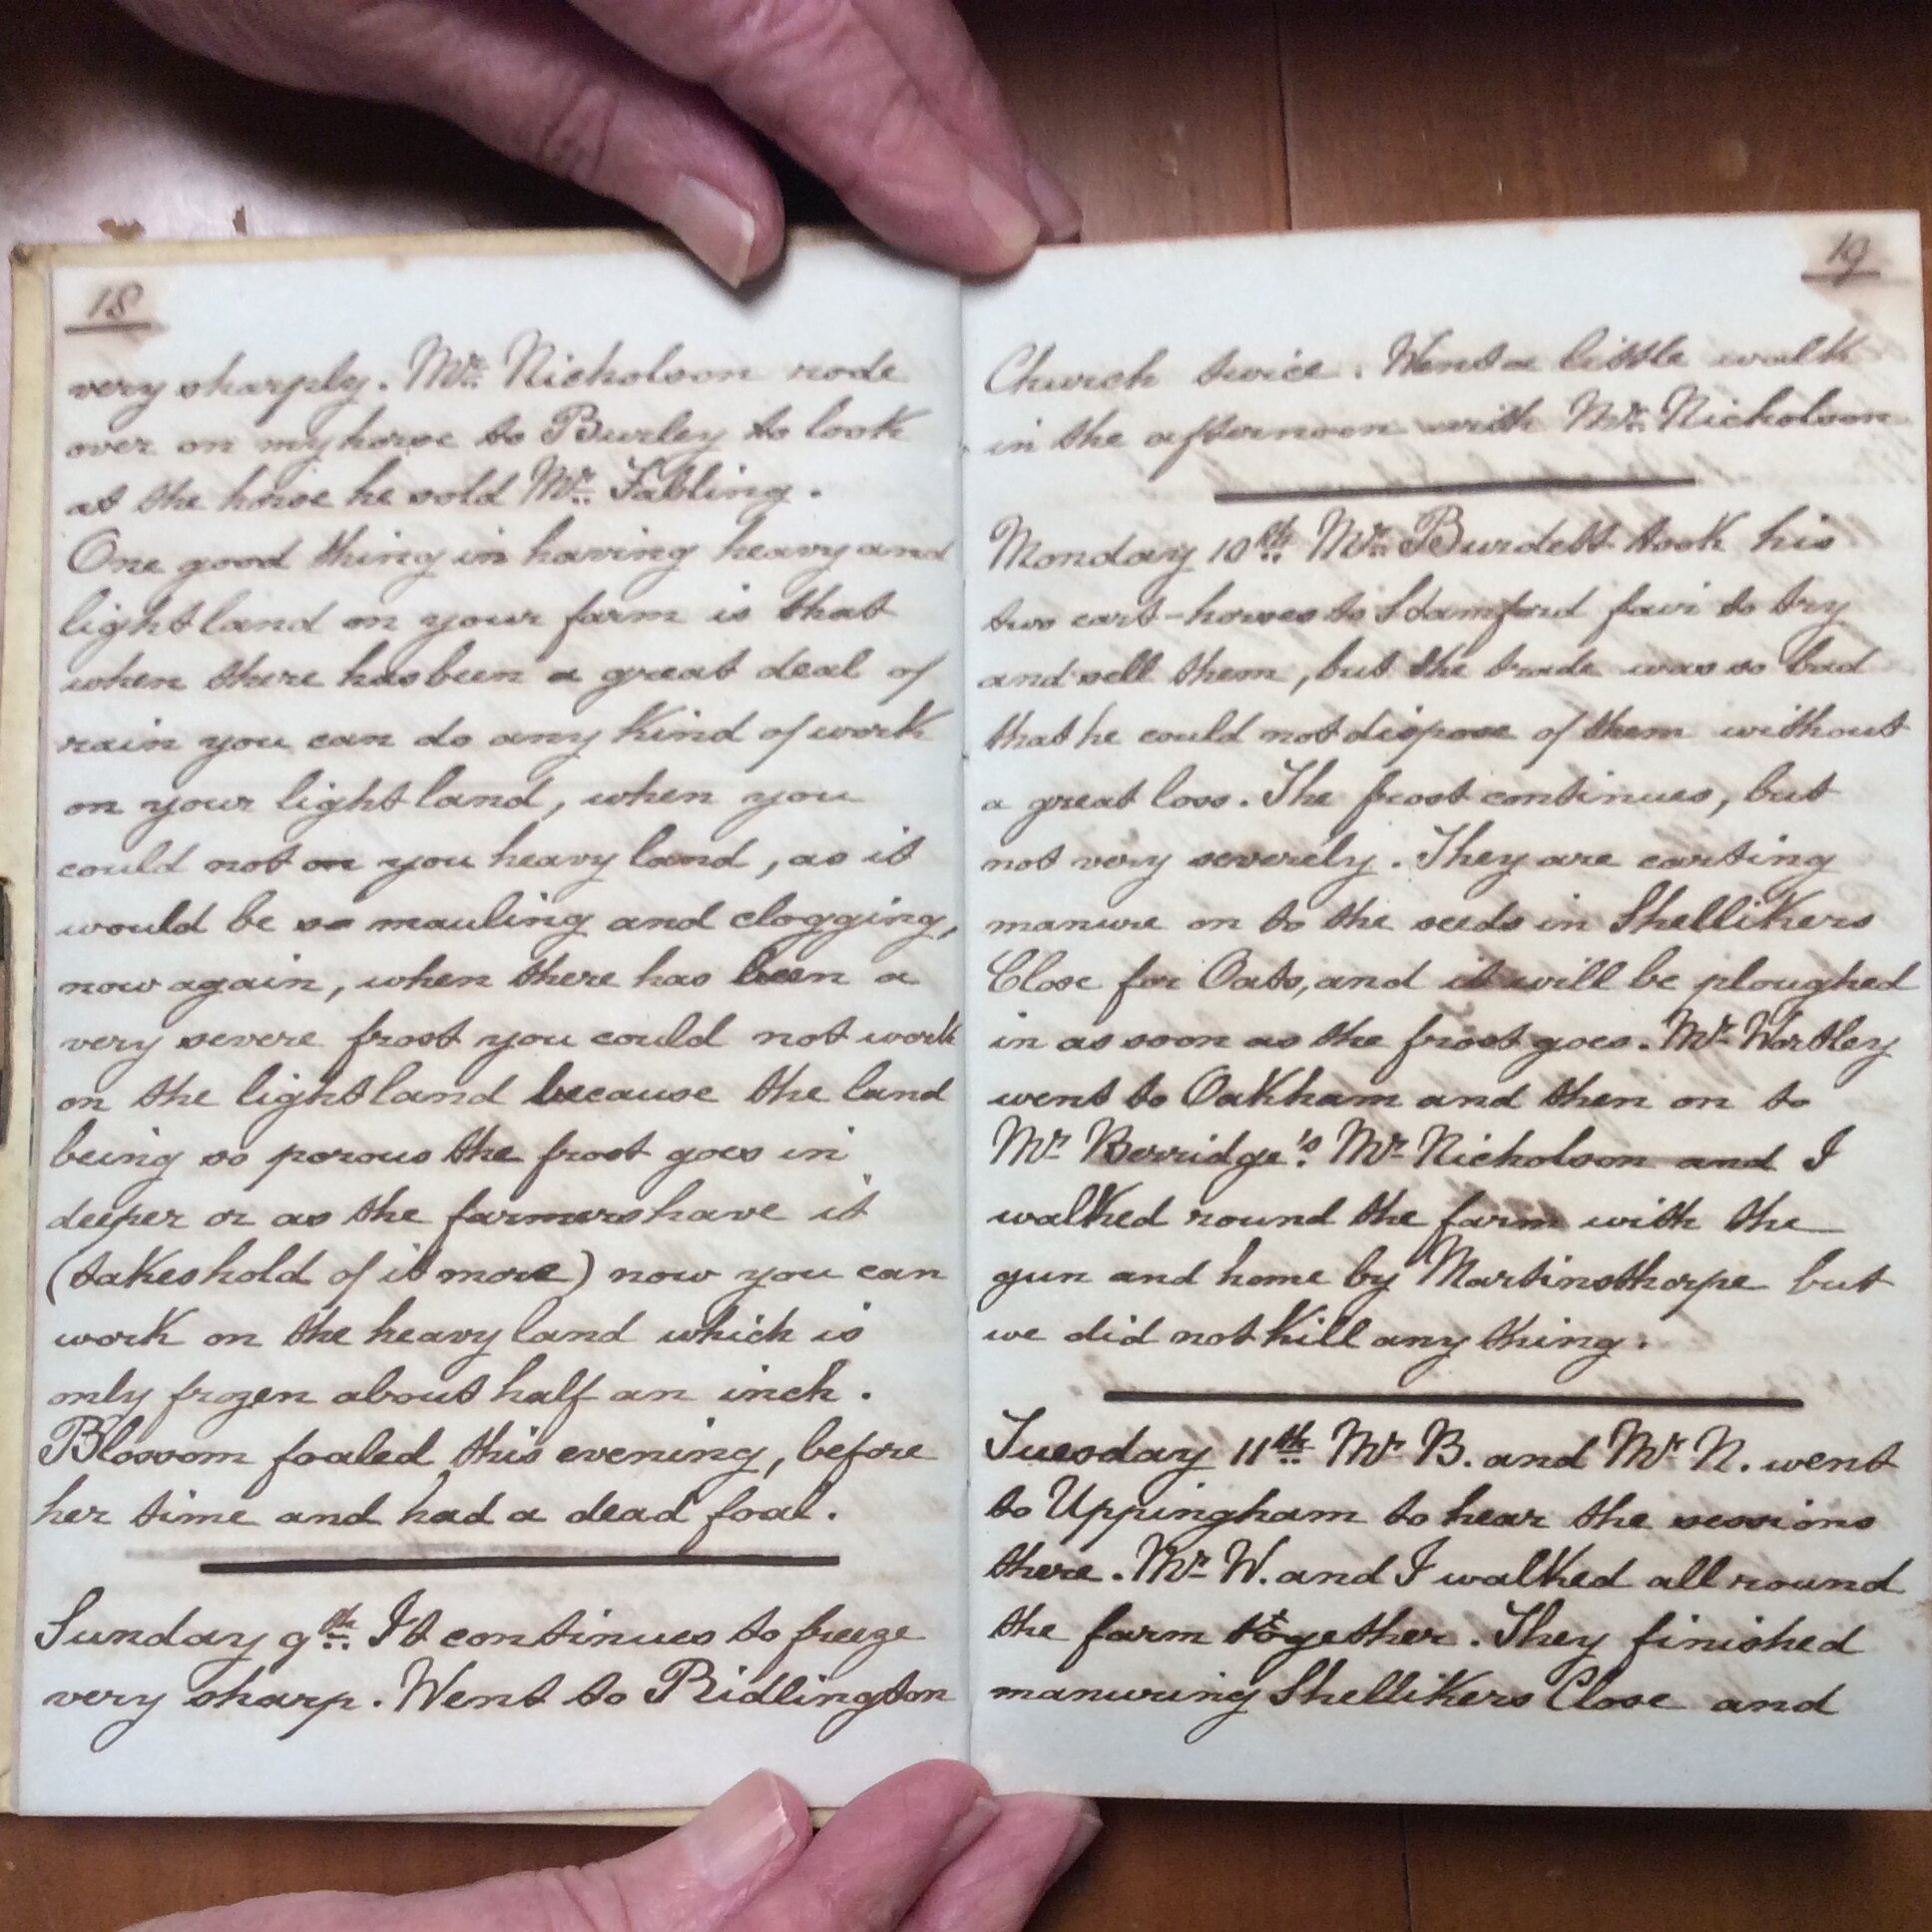 18
very sharply. Mr. Nicholson rode
over on my horse to Burley to look
at the horse he sold Mr. Fabling.
One good thing in having heavy and
light land on your farm is that
when there has been a great deal of
rain you can do any kind of work
on your light land, when you
could not on you heavy land, as it
would be so mauling and clogging,
now again, when there has been a
very severe frost you could not work
on the light land because the land
being so porous the frost goes in
deeper or as the farmers have it
(takes hold of it more) now you can
work on the heavy land which is
only frozen about half an inch.
Blossom foaled this evening, before
her time and had a dead foal.
Sunday 9th. It continues to freeze
very sharp. Went to Ridlington
19
Church twice. Went a little walk
in the afternoon with Mr. Nicholson
Monday 10th. Mr. Burdett took his
two cart-horses to Stamford fair to try
and sell them, but the trade was so bad
that he could not dispose of them without
a great loss. The frost continues, but
not very severely. They are carting
manure on to the seeds in Shellikers
Close for Oats, and it will be ploughed
in as soon as the frost goes. Mr Wortley
went to Oakham and then on to
Mr Berridge's. Mr Nicholson and I
walked round the farm with the
gun and home by Martinsthorpe but
we did not kill any thing.
Tuesday 11th. Mr B. and Mr N. went
to Uppingham to hear the sessions
there. Mr W. and I walked all round
the farm together. They finished
manuring Shellikers Close and